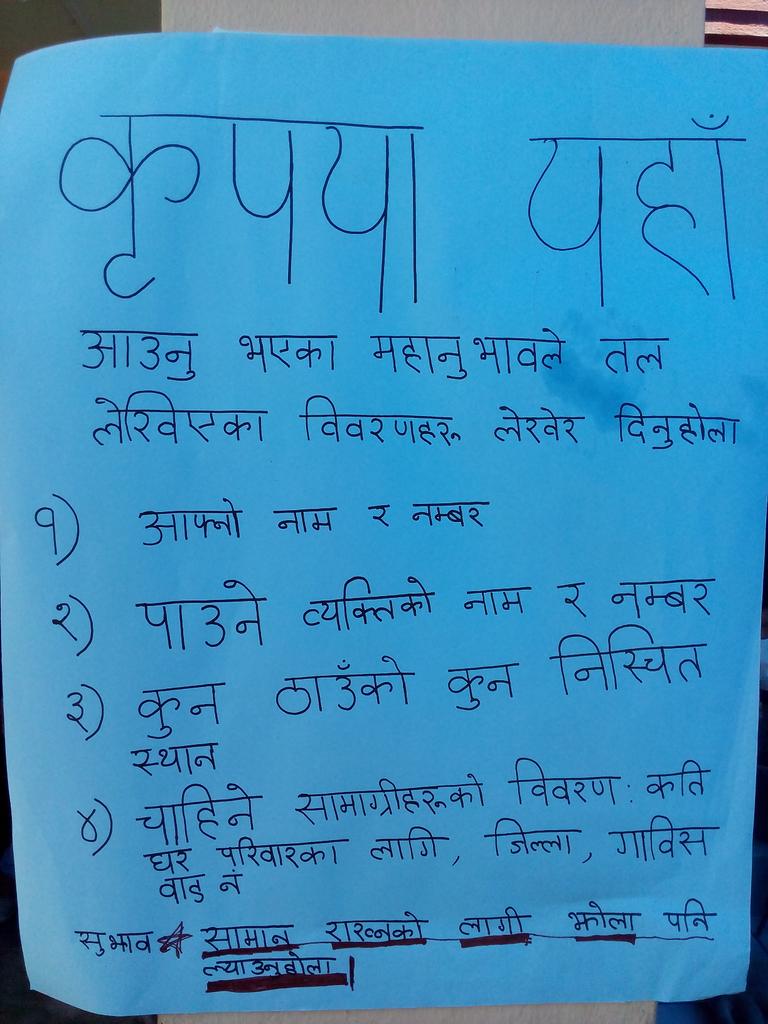 कृपया यहाँ
आउनु भएका महानुभावले तल
लेखिएका विवरणहरू लेखेर दिनुहोला
१) आफ्नो नाम र नम्बर
२) पाउने व्यक्तिको नाम र नम्बर
३) कुन ठाउँको कुन निस्चित
स्थान
४) चाहिने सामाग्रीहरूको विवरण : कति
घर परिवारका लागि, जिल्ला, गाविस
वाड नं
सुझाव ★ सामान राख्नको लागी झोला पनि
ल्याउनुहोला।